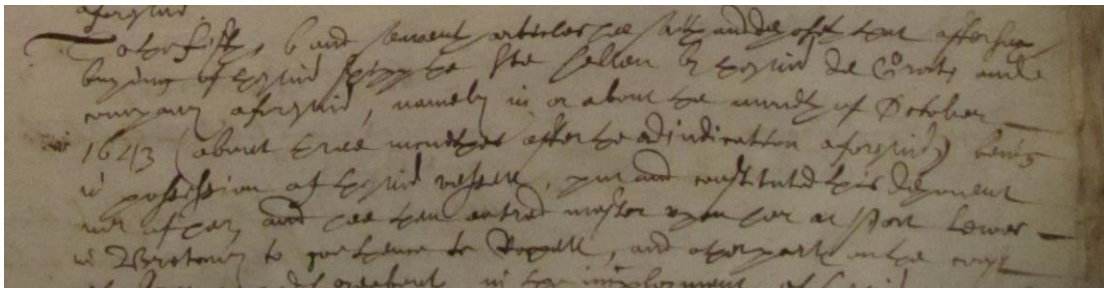 aforesaid.
To the fift, 6 and seavent articles hee saith and deposeth that after the
buying of the said shipp the Ste Hellen by the said de Groot, and
company aforesaid, namely in or about the moneth of October
1643 (about three moneths after the adiudication aforesaid) being
in possession of the said vessell, put and constituted this deponent
mr of her, and hee then entred master upon her at Port Lewes
in Bretony to goe thence to Rochell, and other parts on the coast
of in the imployment of the said